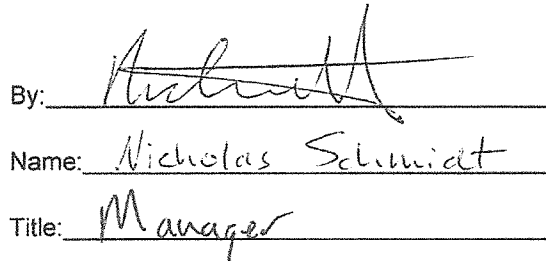 By:
Name: Nicholas Schmidt
Title: Manager